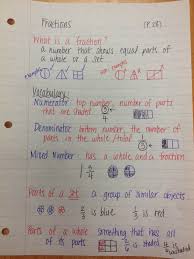 Fractions
What is a fraction?
a number that shows equal parts of
a whole or a set
Vocabulary
Numerator: top number, number of parts
that are shaded. 3/4
Denominator: bottom number, the number of
parts in the whole/total
Mixed Number: has a whole and a fraction
Parts of a set: a group of similar objects
2/3 is blue 1/3 is red
Parts of a whole: something that has all
of its parts is shaded